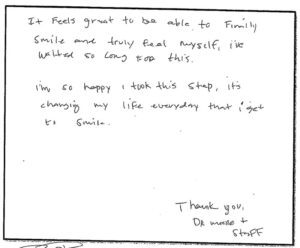 It Feels great to be able to Finilly
Smile and truly feel myself, i've
waited so long FOR this.
i'm so happy i took this step, it's
changing my life everyday that i get
to smile.
Thank you,
DR + StaFF